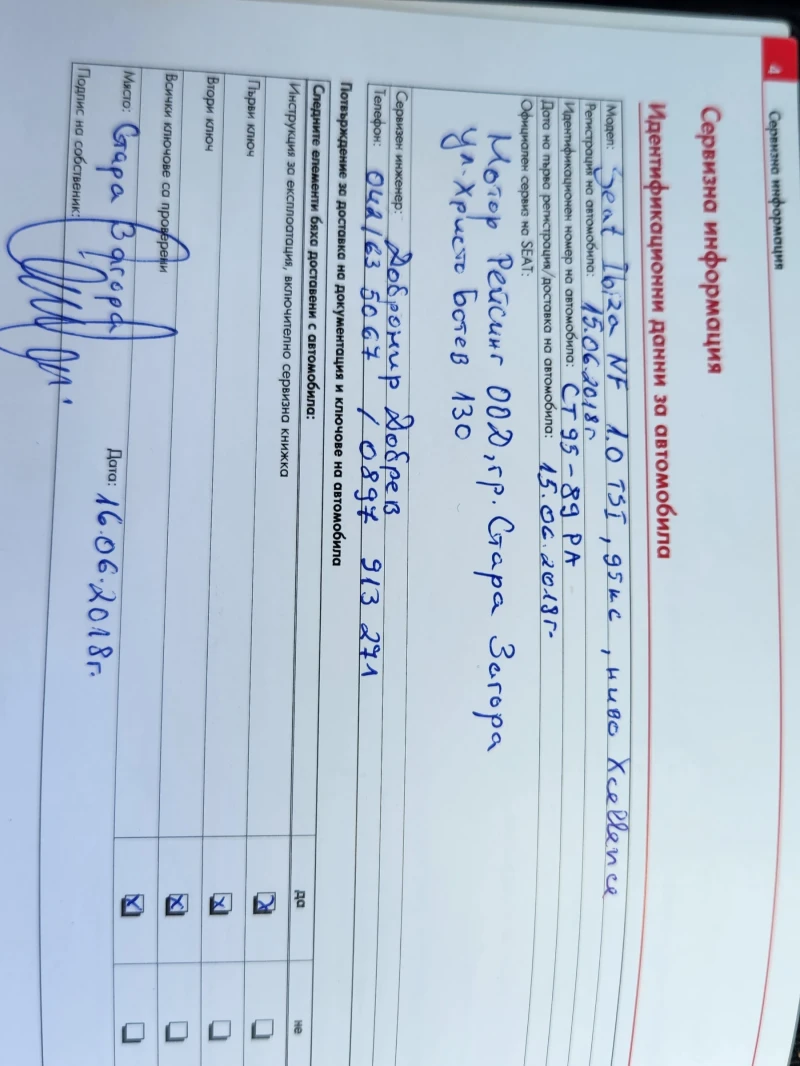 4 Сервизна информация
Сервизна информация
Идентификационни данни за автомобила
Модел: Seat Ibiza NF 1.0 TSI, 95кс, ниво Xcellence
Регистрация на автомобила: 15.06.2018г
Идентификационен номер на автомобила: СТ 95-89 РА
Дата на първа регистрация/доставка на автомобила: 15.06.2018г.
Официален сервиз на SEAT:
Мотор Рейсинг ООД, гр. Стара Загора
ул. Христо Ботев 130
Сервизен инженер: Добромир Добрев
Телефон: 042/63 5067 / 0897 913 271
Потвърждение за доставка на документация и ключове на автомобила
Следните елементи бяха доставени с автомобила: да не
Инструкция за експлоатация, включително сервизна книжка
Първи ключ
Втори ключ
Всички ключове са проверени
Място: Стара Загора Дата: 16.06.2018г.
Подпис на собственик: